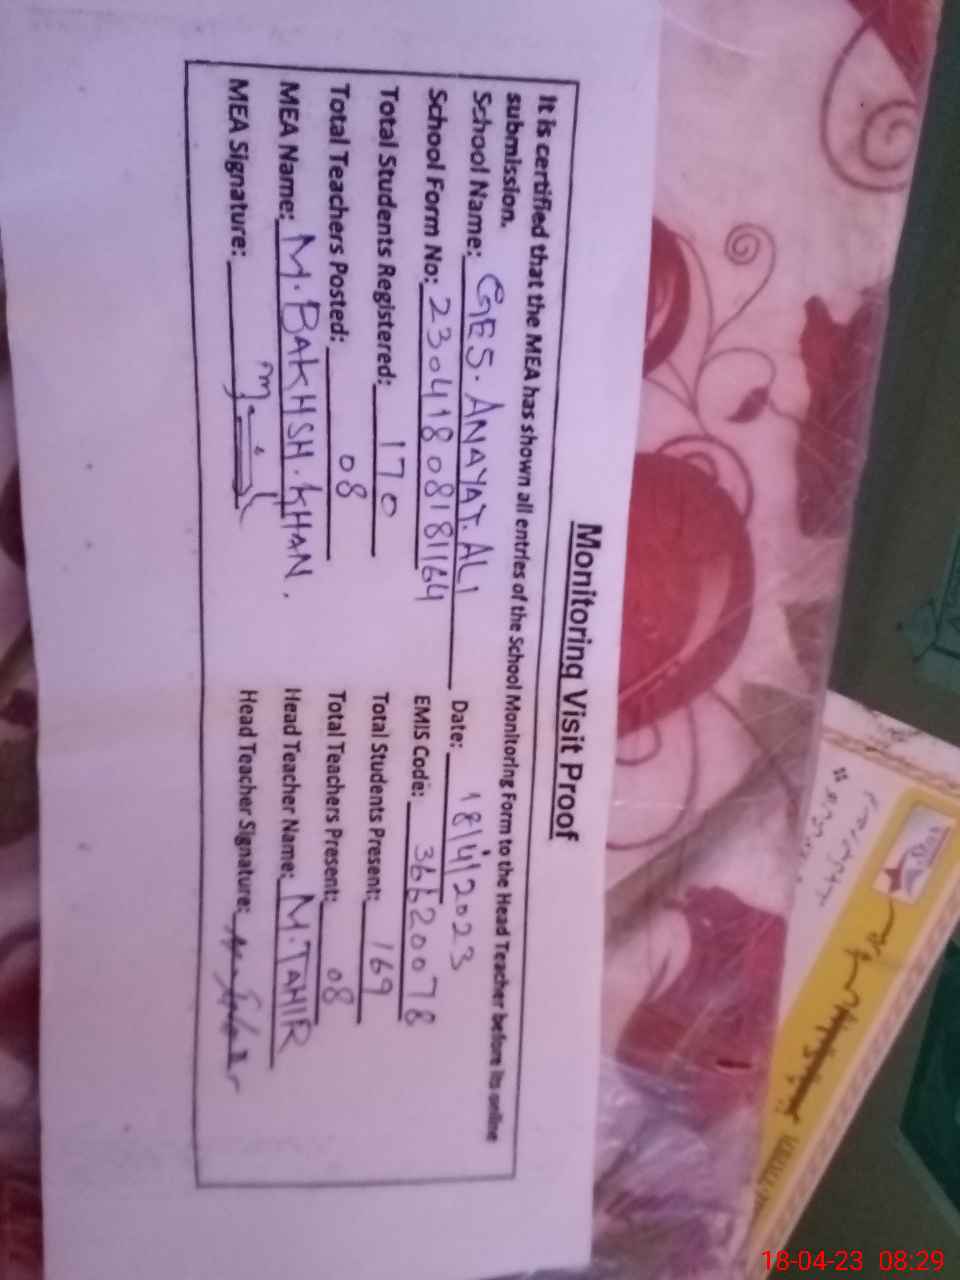 Monitoring Visit Proof
It is certified that the MEA has shown all entries of the School Monitoring Form to the Head Teacher before its online
submission.
School Name: GES. ANAYAT. ALI Date: 18/4/2023
School Form No: 230418 08181164 EMIS Code: 36620078
Total Students Registered: 170 Total Students Present: 169
Total Teachers Posted: 08 Total Teachers Present: 08
MEA Name: M. BAKHSH. KHAN. Head Teacher Name: M. TAHIR
MEA Signature: Head Teacher Signature:
18-04-23 08:29